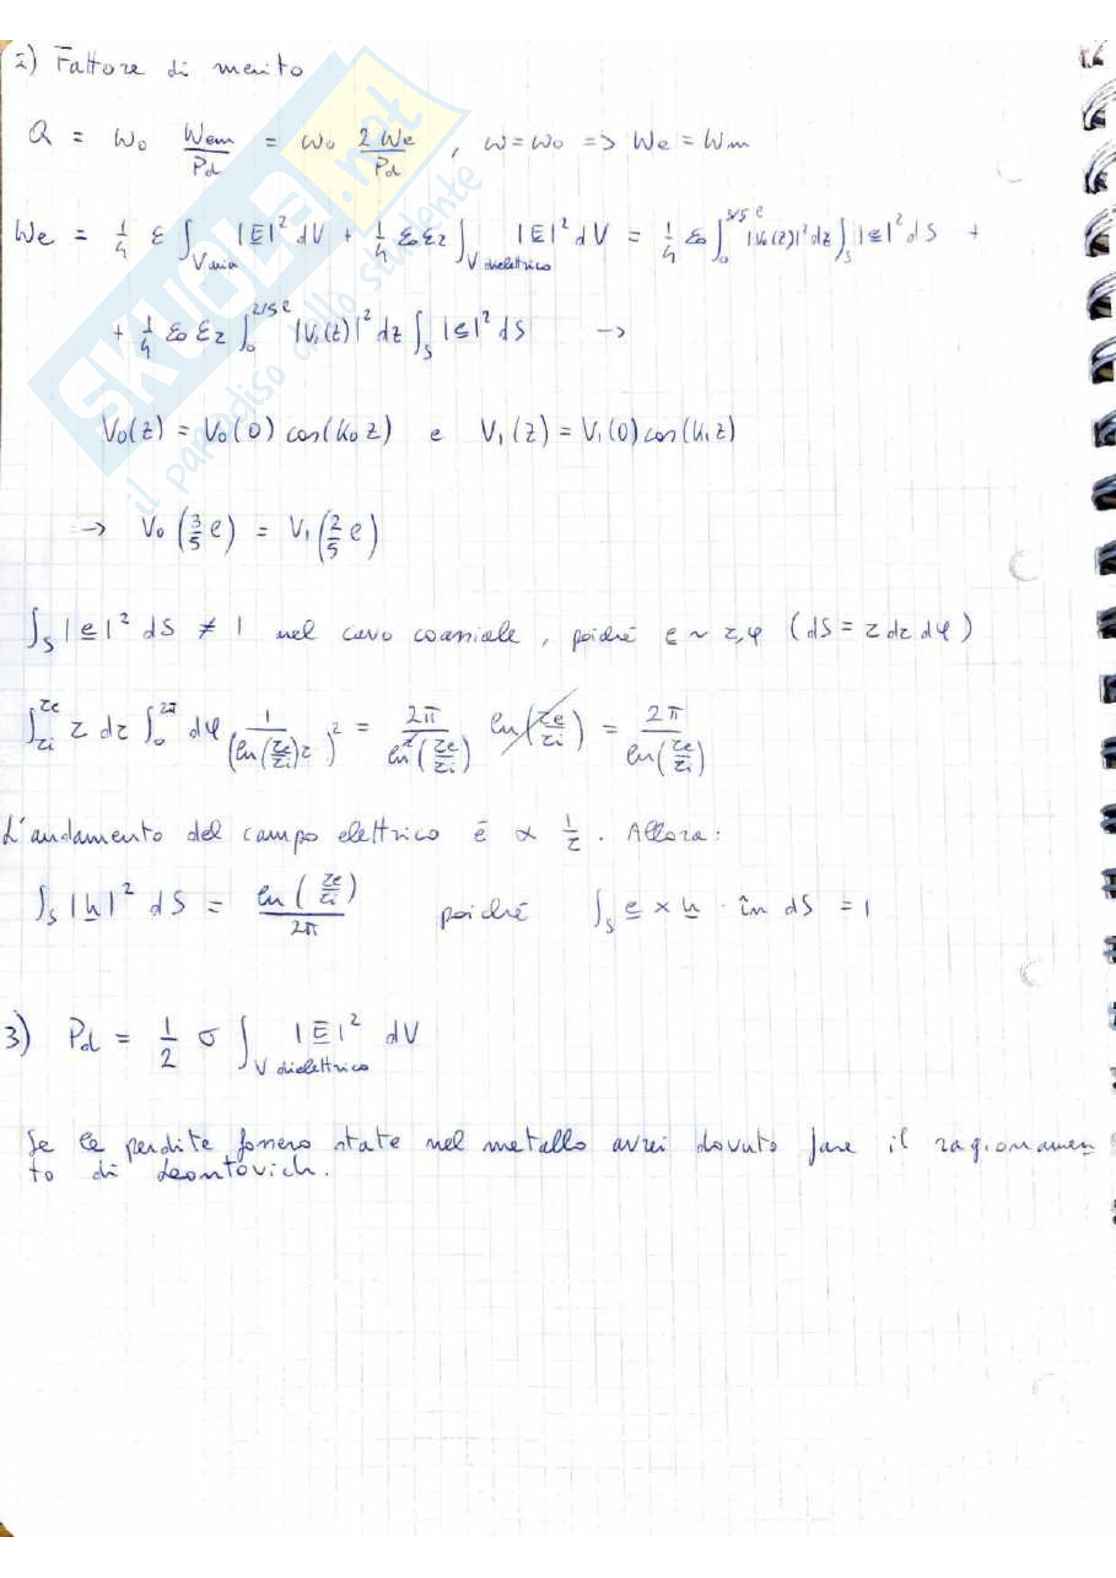 2) Fattore di merito
Q = ω₀ Wem/Pd = ω₀ 2We/Pd , ω=ω₀ => We = Wm
We = 1/4 ε ∫_V aria |E|² dV + 1/4 ε₀ εr ∫_V dielettrico |E|² dV = 1/4 ε₀ ∫₀^{3/5 l} |V₀(z)|² dz ∫_S |e|² dS +
+ 1/4 ε₀ εr ∫₀^{2/5 l} |V₁(z)|² dz ∫_S |e|² dS →
V₀(z) = V₀(0) cos(k₀ z) e V₁(z) = V₁(0) cos(k₁ z)
→ V₀(3/5 l) = V₁(2/5 l)
∫_S |e|² dS ≠ 1 nel cavo coassiale, poiché e ~ r,φ (dS = r dr dφ)
∫_{ri}^{re} r dr ∫₀^{2π} dφ (1/(ln(re/ri) r))² = 2π/ln²(re/ri) ln(re/ri) = 2π/ln(re/ri)
L'andamento del campo elettrico è ∝ 1/r . Allora:
∫_S |h|² dS = ln(re/ri)/2π poiché ∫_S e × h · în dS = 1
3) Pd = 1/2 σ ∫_V dielettrico |E|² dV
Se le perdite fossero state nel metallo avrei dovuto fare il ragionamen
to di Leontovich.
SKUOLA.net
il paradiso dello studente